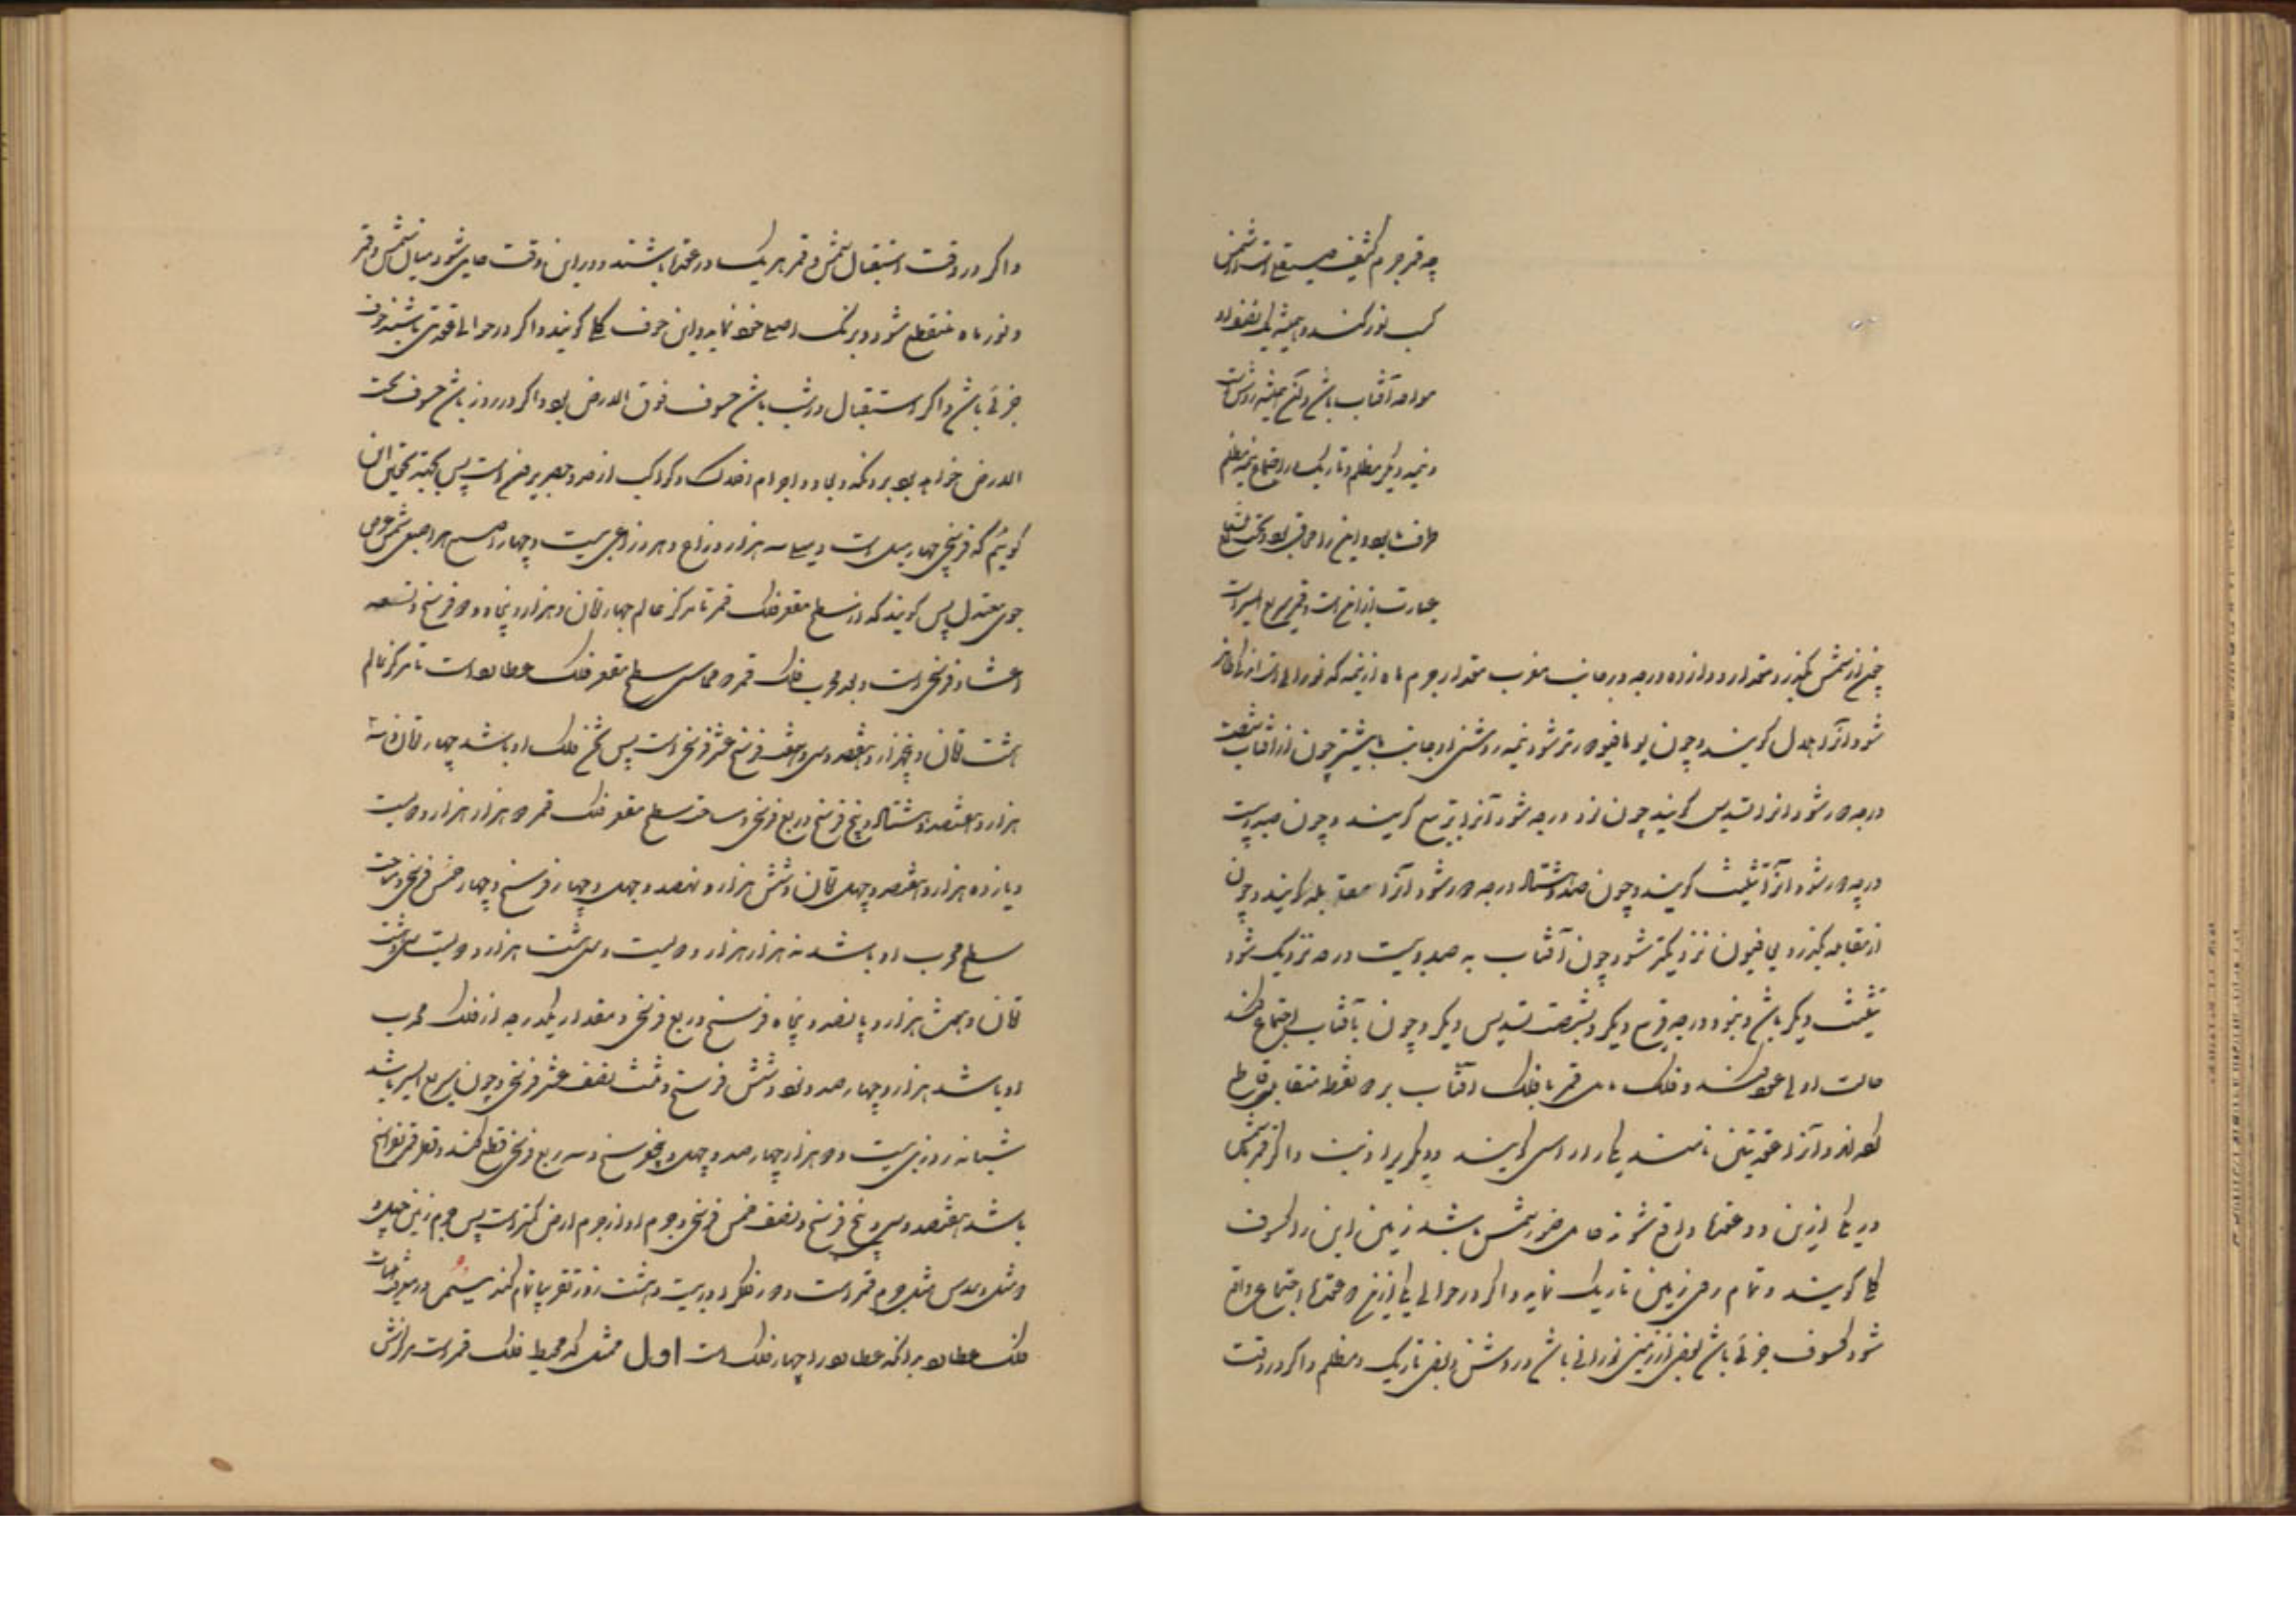 چه قمر جرم کثیف صیقلی است از شمس
کسب نور کند و همیشه یک نصف او
مواجه آفتاب باشد و آن همیشه روشن است
و نیمه دیگر مظلم و تاریک در اجتماع نیمه مظلم
طرف ما بود و این را محاق بود و تحت الشعاع
عبارت از این است و قمر سریع السیر است
چون از شمس بگذرد مقدار دوازده درجه در جانب مغرب مقدار جرم ماه از نیمه که نورانی است
شود آنرا هلال گویند و چون یوما فیوما دورتر شود نیمه روشن از جانب ما بیشتر چون از آفتاب شصت
درجه دور شود انرا تسدیس گویند چون نود درجه شود آنرا تربیع گویند و چون صد و بیست
درجه دور شود آنرا تثلیث گویند و چون صد و هشتاد درجه دور شود آنرا مقابله گویند و چون
از مقابله بگذرد نزدیکتر شود چون آفتاب به صد و بیست درجه نزدیک شود
تثلیث دیگر باشد و بنود درجه تربیع دیگر و بشصت تسدیس دیگر و چون بآفتاب اجتماع کند
حالت اولی عود کند و فلک مایل قمر با فلک آفتاب بر دو نقطه متقابل تقاطع
کرده‌اند و آنرا عقدتین نامند یکی را راس گویند و دیگریرا ذنب و اگر قمر بشمس
در یکی ازین دو عقدها واقع شود حایل ضوء شمس باشد زمین این را کسوف
کلی گویند و تمام روی زمین تاریک نماید و اگر در حوالی یکی ازین دو عقدها اجتماع واقع
شود کسوف جزئی باشد بعضی از زمین نورانی باشد و روشن و بعضی تاریک و مظلم و اگر در وقت
و اگر در وقت استقبال شمس و قمر هر یک در عقدها باشند و در این وقت حایل شود میان شمس و قمر
و نور ماه منقطع شود و برنگ اصلی خود نماید و این خسوف کلی گویند و اگر در حوالی عقدتین باشند خسوف
جزئی باشد و اگر استقبال در شب باشد خسوف فوق الارض بود و اگر در روز باشد خسوف تحت
الارض خواهد بود بدانکه ابعاد و اجرام افلاک و کواکب
گوئیم که فرسخی چهار میل است و میلی سه هزار ذراع و هر ذراعی بیست و چهار اصبع هر اصبعی شش عرض
جوی معتدل پس گویند که از سطح مقعر فلک قمر تا مرکز عالم چهار قان و هزار و پنجاه و دو فرسخ و تسعه
اعشار فرسخی است و بعد محدب فلک قمر و مماس سطح مقعر فلک عطارد است تا مرکز عالم
هشت قان و پنجهزار و هفتصد و سی و هفت فرسخ عشر فرسخی است پس ثخن فلک او باشد چهار قان و سه
هزار و هفتصد و هشتاد و پنج فرسخ و ربع فرسخی و مساحت سطح مقعر فلک قمر دو هزار هزار و دویست
و یازده هزار و هفتصد و چهل قان و شش هزار و نهصد و چهل و چهار فرسخ و چهار خمس فرسخی و مساحت
سطح محدب او باشد نه هزار هزار و دویست و سی و هشت هزار و دویست و سی و هشت
قان و هشت هزار و پانصد و پنجاه فرسخ و ربع فرسخی و مقدار یکدرجه از فلک محدب
او باشد هزار و چهار صد و نود و شش فرسخ و ثلث نصف عشر فرسخی و چون سریع السیر باشد
شبانه روزی بیست و دو هزار و چهار صد و چهل و پنج فرسخ و سه ربع فرسخی قطع کند و قطر قمر
باشد هفتصد و سی و پنج فرسخ و نصف خمس فرسخی و جرم او از جرم ارض کمتر است پس جرم زمین چهل و
و ثلث و سدس مثل جرم قمر است و دور فلک او در بیست و هشت روز تقریبا تمام کند
فلک عطارد بدانکه عطارد را چهار فلک است اول ممثل که محیط فلک قمر است